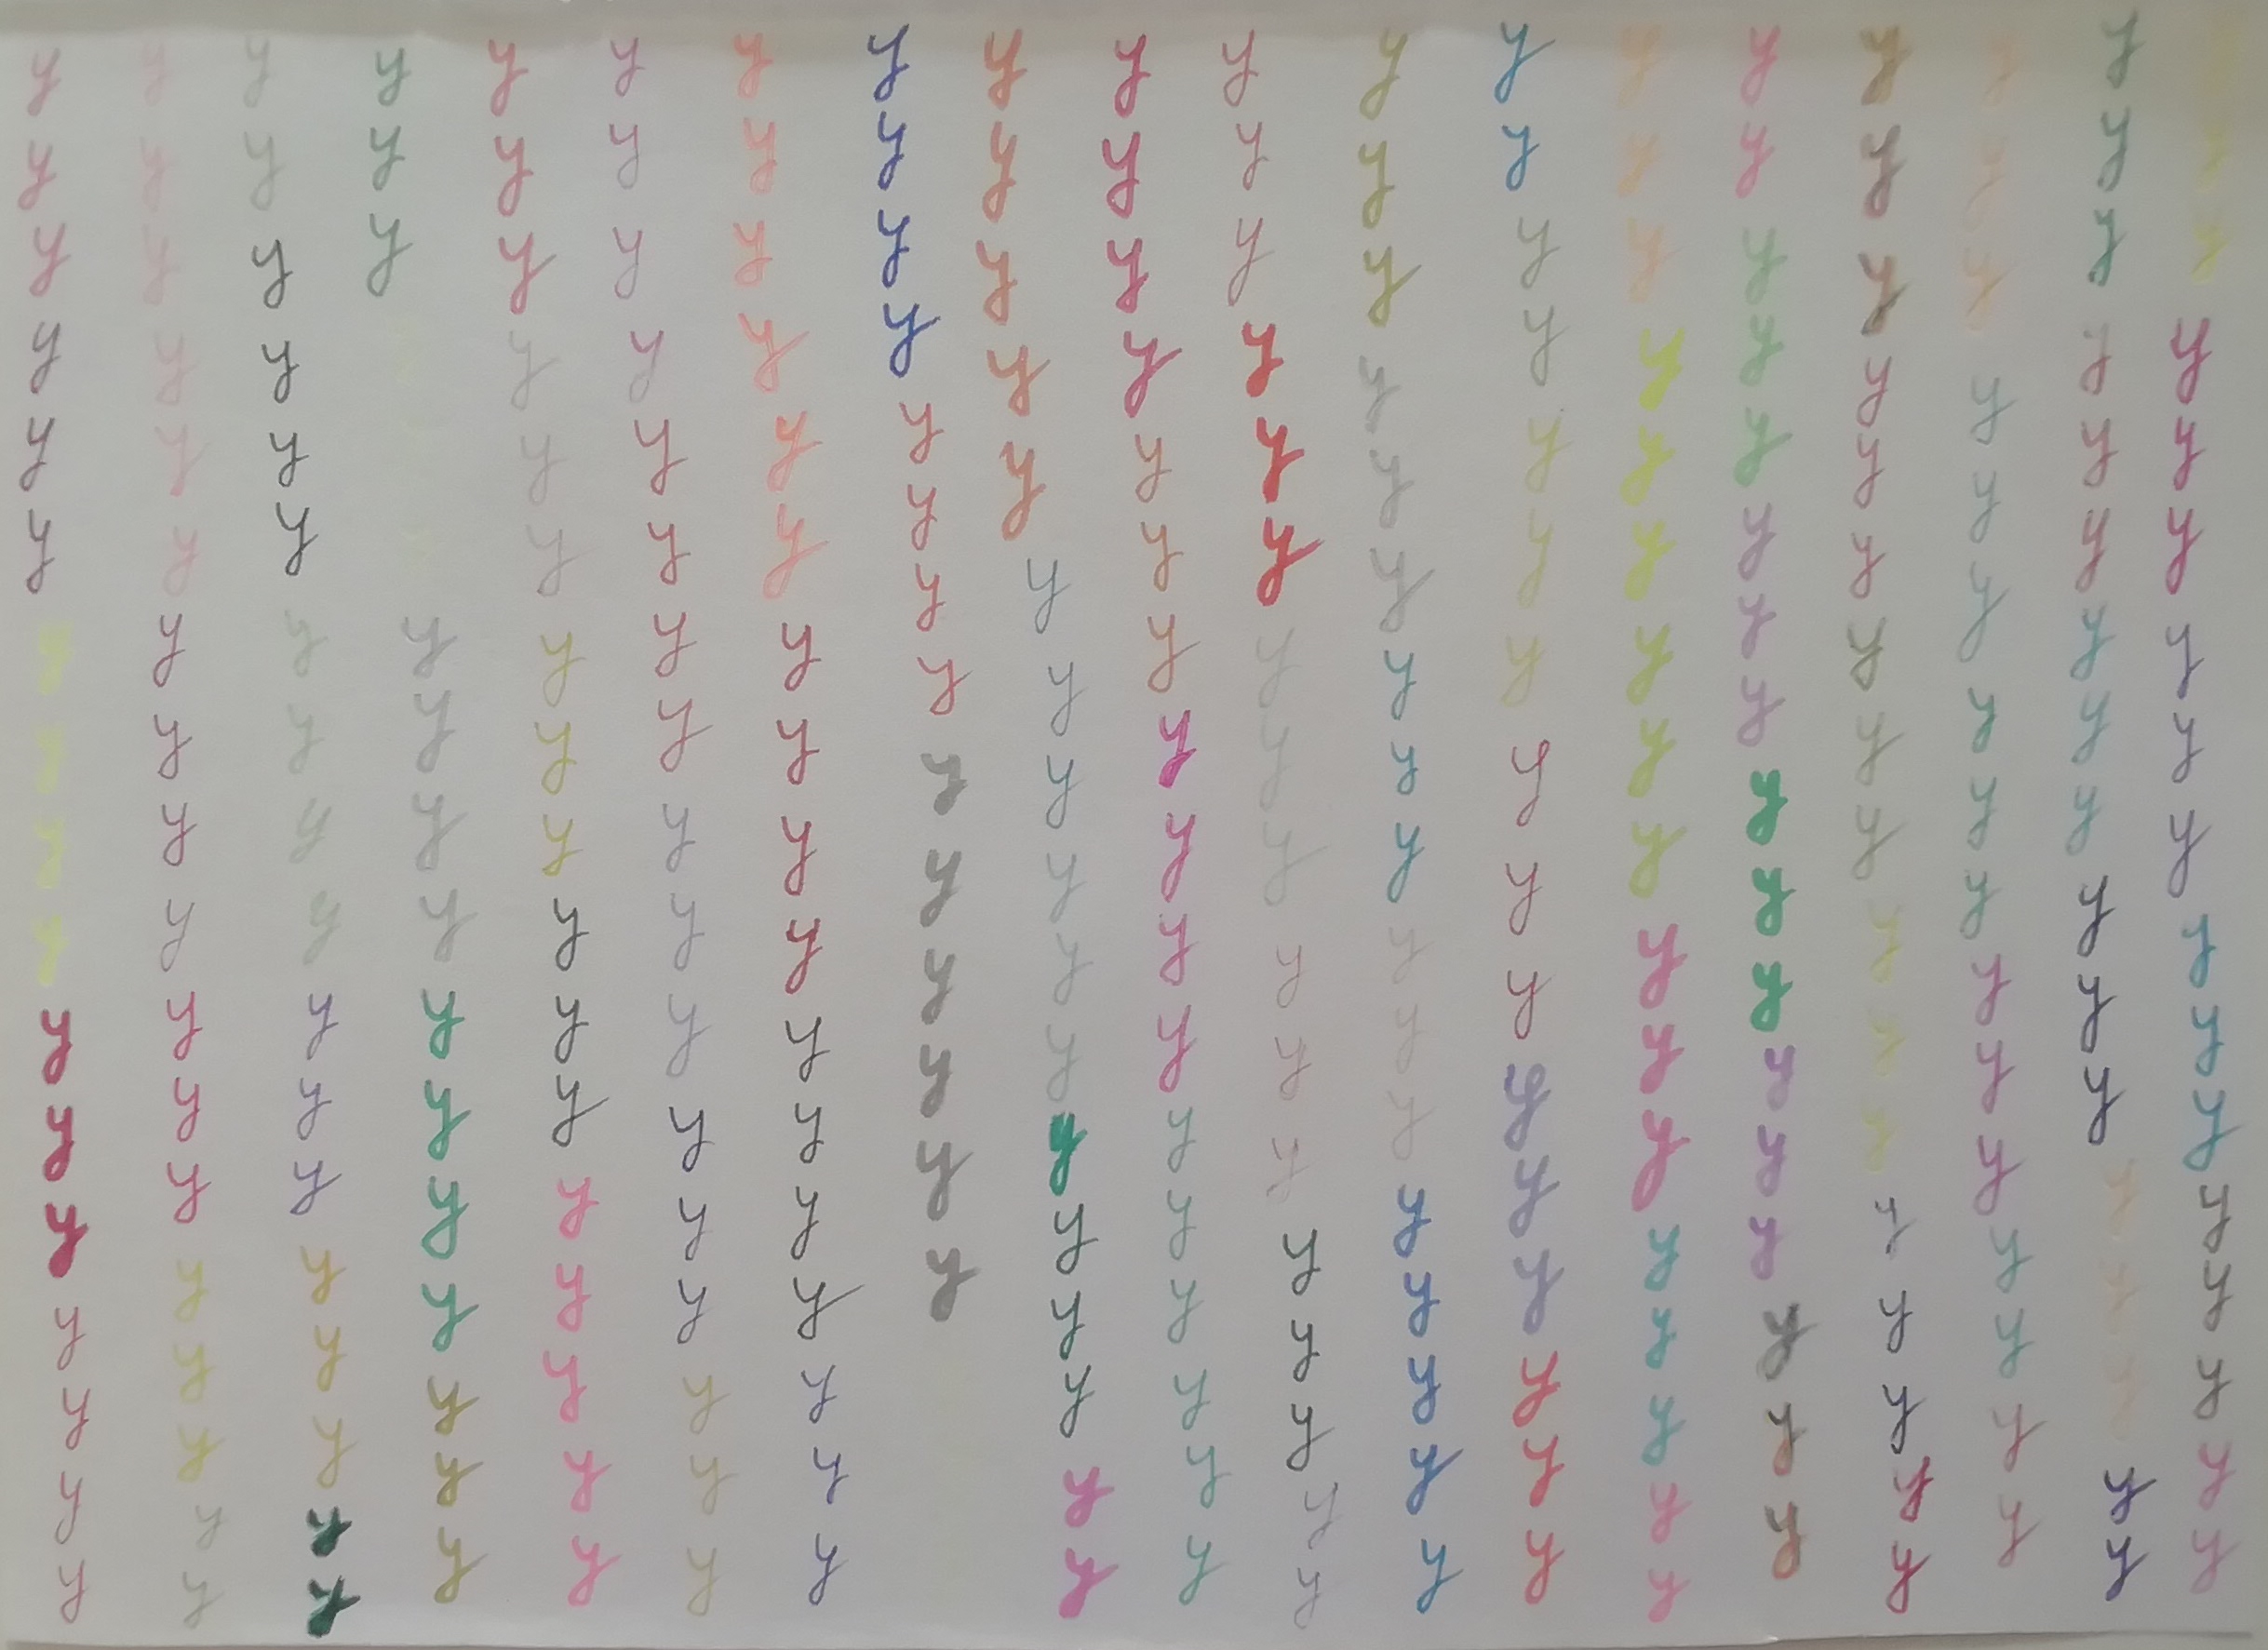 y y y y y y y y y y y y y y y y y y y
y y y y y y y y y y y y y y y y y y y
y y y y y y y y y y y y y y y y y y y
y y y y y y y y y y y y y y y y y y y
y y y y y y y y y y y y y y y y y y y
y y y y y y y y y y y y y y y y y y y
y y y y y y y y y y y y y y y y y y y
y y y y y y y y y y y y y y y y y y y
y y y y y y y y y y y y y y y y y y y
y y y y y y y y y y y y y y y y y y y
y y y y y y y y y y y y y y y y y y y
y y y y y y y y y y y y y y y y y y y
y y y y y y y y y y y y y y y y y y y
y y y y y y y y y y y y y y y y y y y
y y y y y y y y y y y y y y y y y y
y y y y y y y y y y y y y y y y y y
y y y y y y y y y y y y y y y y y y